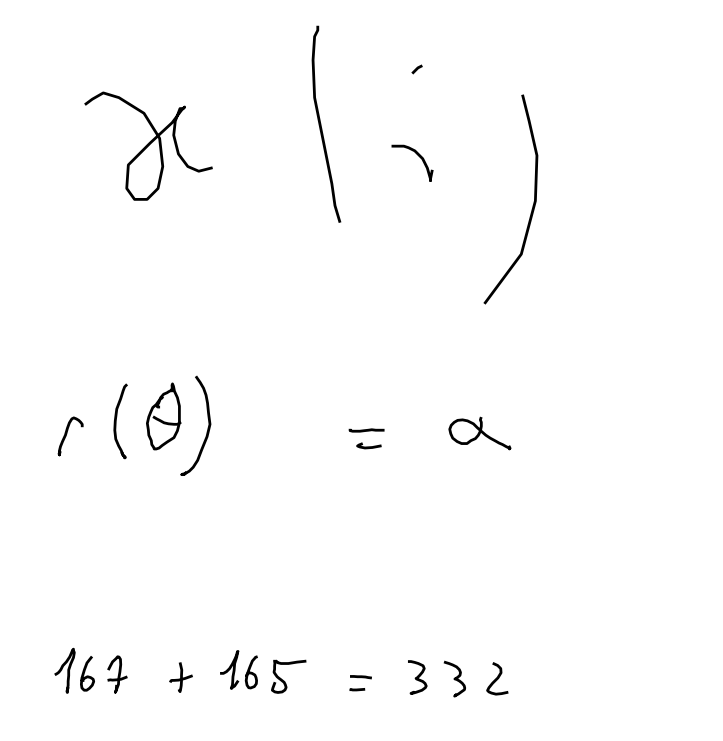 x(i)
r(θ) = α
167 + 165 = 332